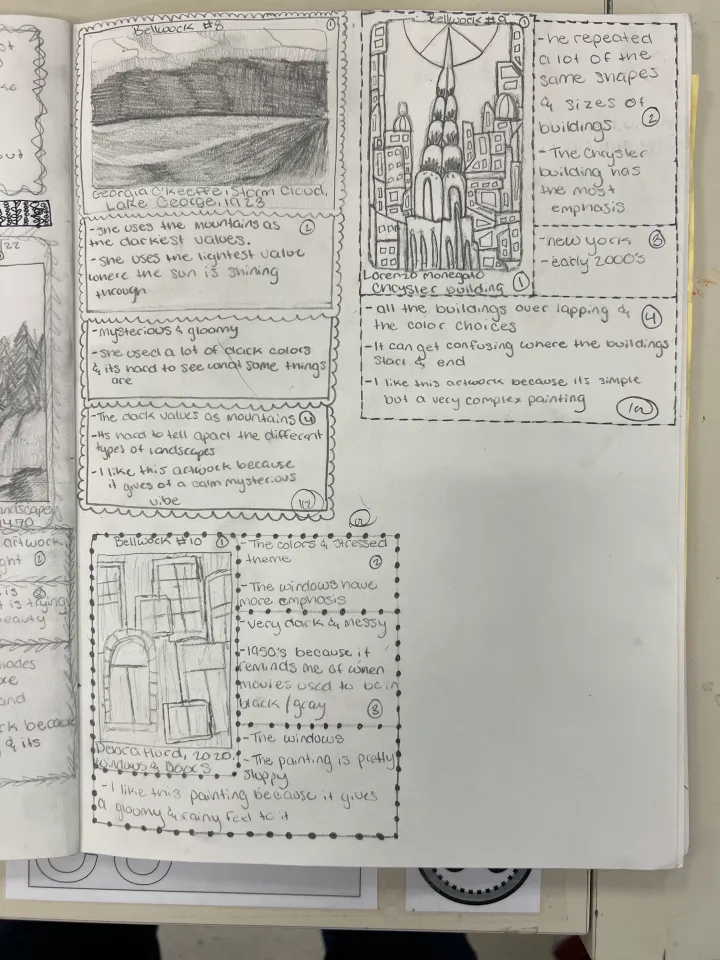 Bellwork #8
①
Georgia O'Keeffe, Storm Cloud,
Lake George, 1923
-she uses the mountains as
the darkest values.
②
-she uses the lightest value
where the sun is shining
through
-mysterious & gloomy
-she used a lot of dark colors
& its hard to see what some things
are
-The dark values as mountains ④
-Its hard to tell apart the different
types of landscapes
-I like this artwork because
it gives of a calm mysterious
vibe
Bellwork #9
①
Lorenzo Monegato
Chrysler building ①
-he repeated
a lot of the
same shapes
& sizes of
buildings ②
-The Chrysler
building has
the most
emphasis
-new york ③
-early 2000's
-all the buildings over lapping &
the color choices ④
-It can get confusing where the buildings
start & end
-I like this artwork because its simple
but a very complex painting
Bellwork #10 ①
Debra Hurd, 2020.
Windows & Doors
-The colors & stressed
theme ②
-The windows have
more emphasis
-very dark & messy
-1950's because it
reminds me of when
movies used to be in
black/gray ③
-The windows
-The painting is pretty
sloppy
-I like this painting because it gives
a gloomy & rainy feel to it
/22
andscape
1470
artwork
ght ②
is ②
t is trying
beauty
and
ck because
& its
out